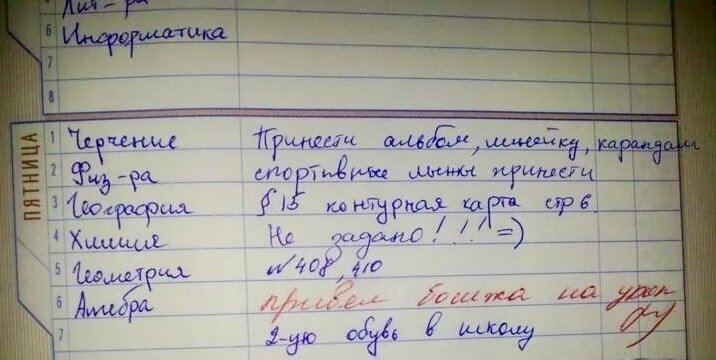 Лит-ра
6 Информатика
7
8
ПЯТНИЦА
1 Черчение Принести альбом, линейку, карандаш
2 Физ-ра спортивные лыжы принести
3 География § 15 контурная карта стр 6.
4 Химия Не задано!!!! =)
5 Геометрия №408, 410
6 Алгебра привел бомжа на урок
7 2-ую обувь в школу